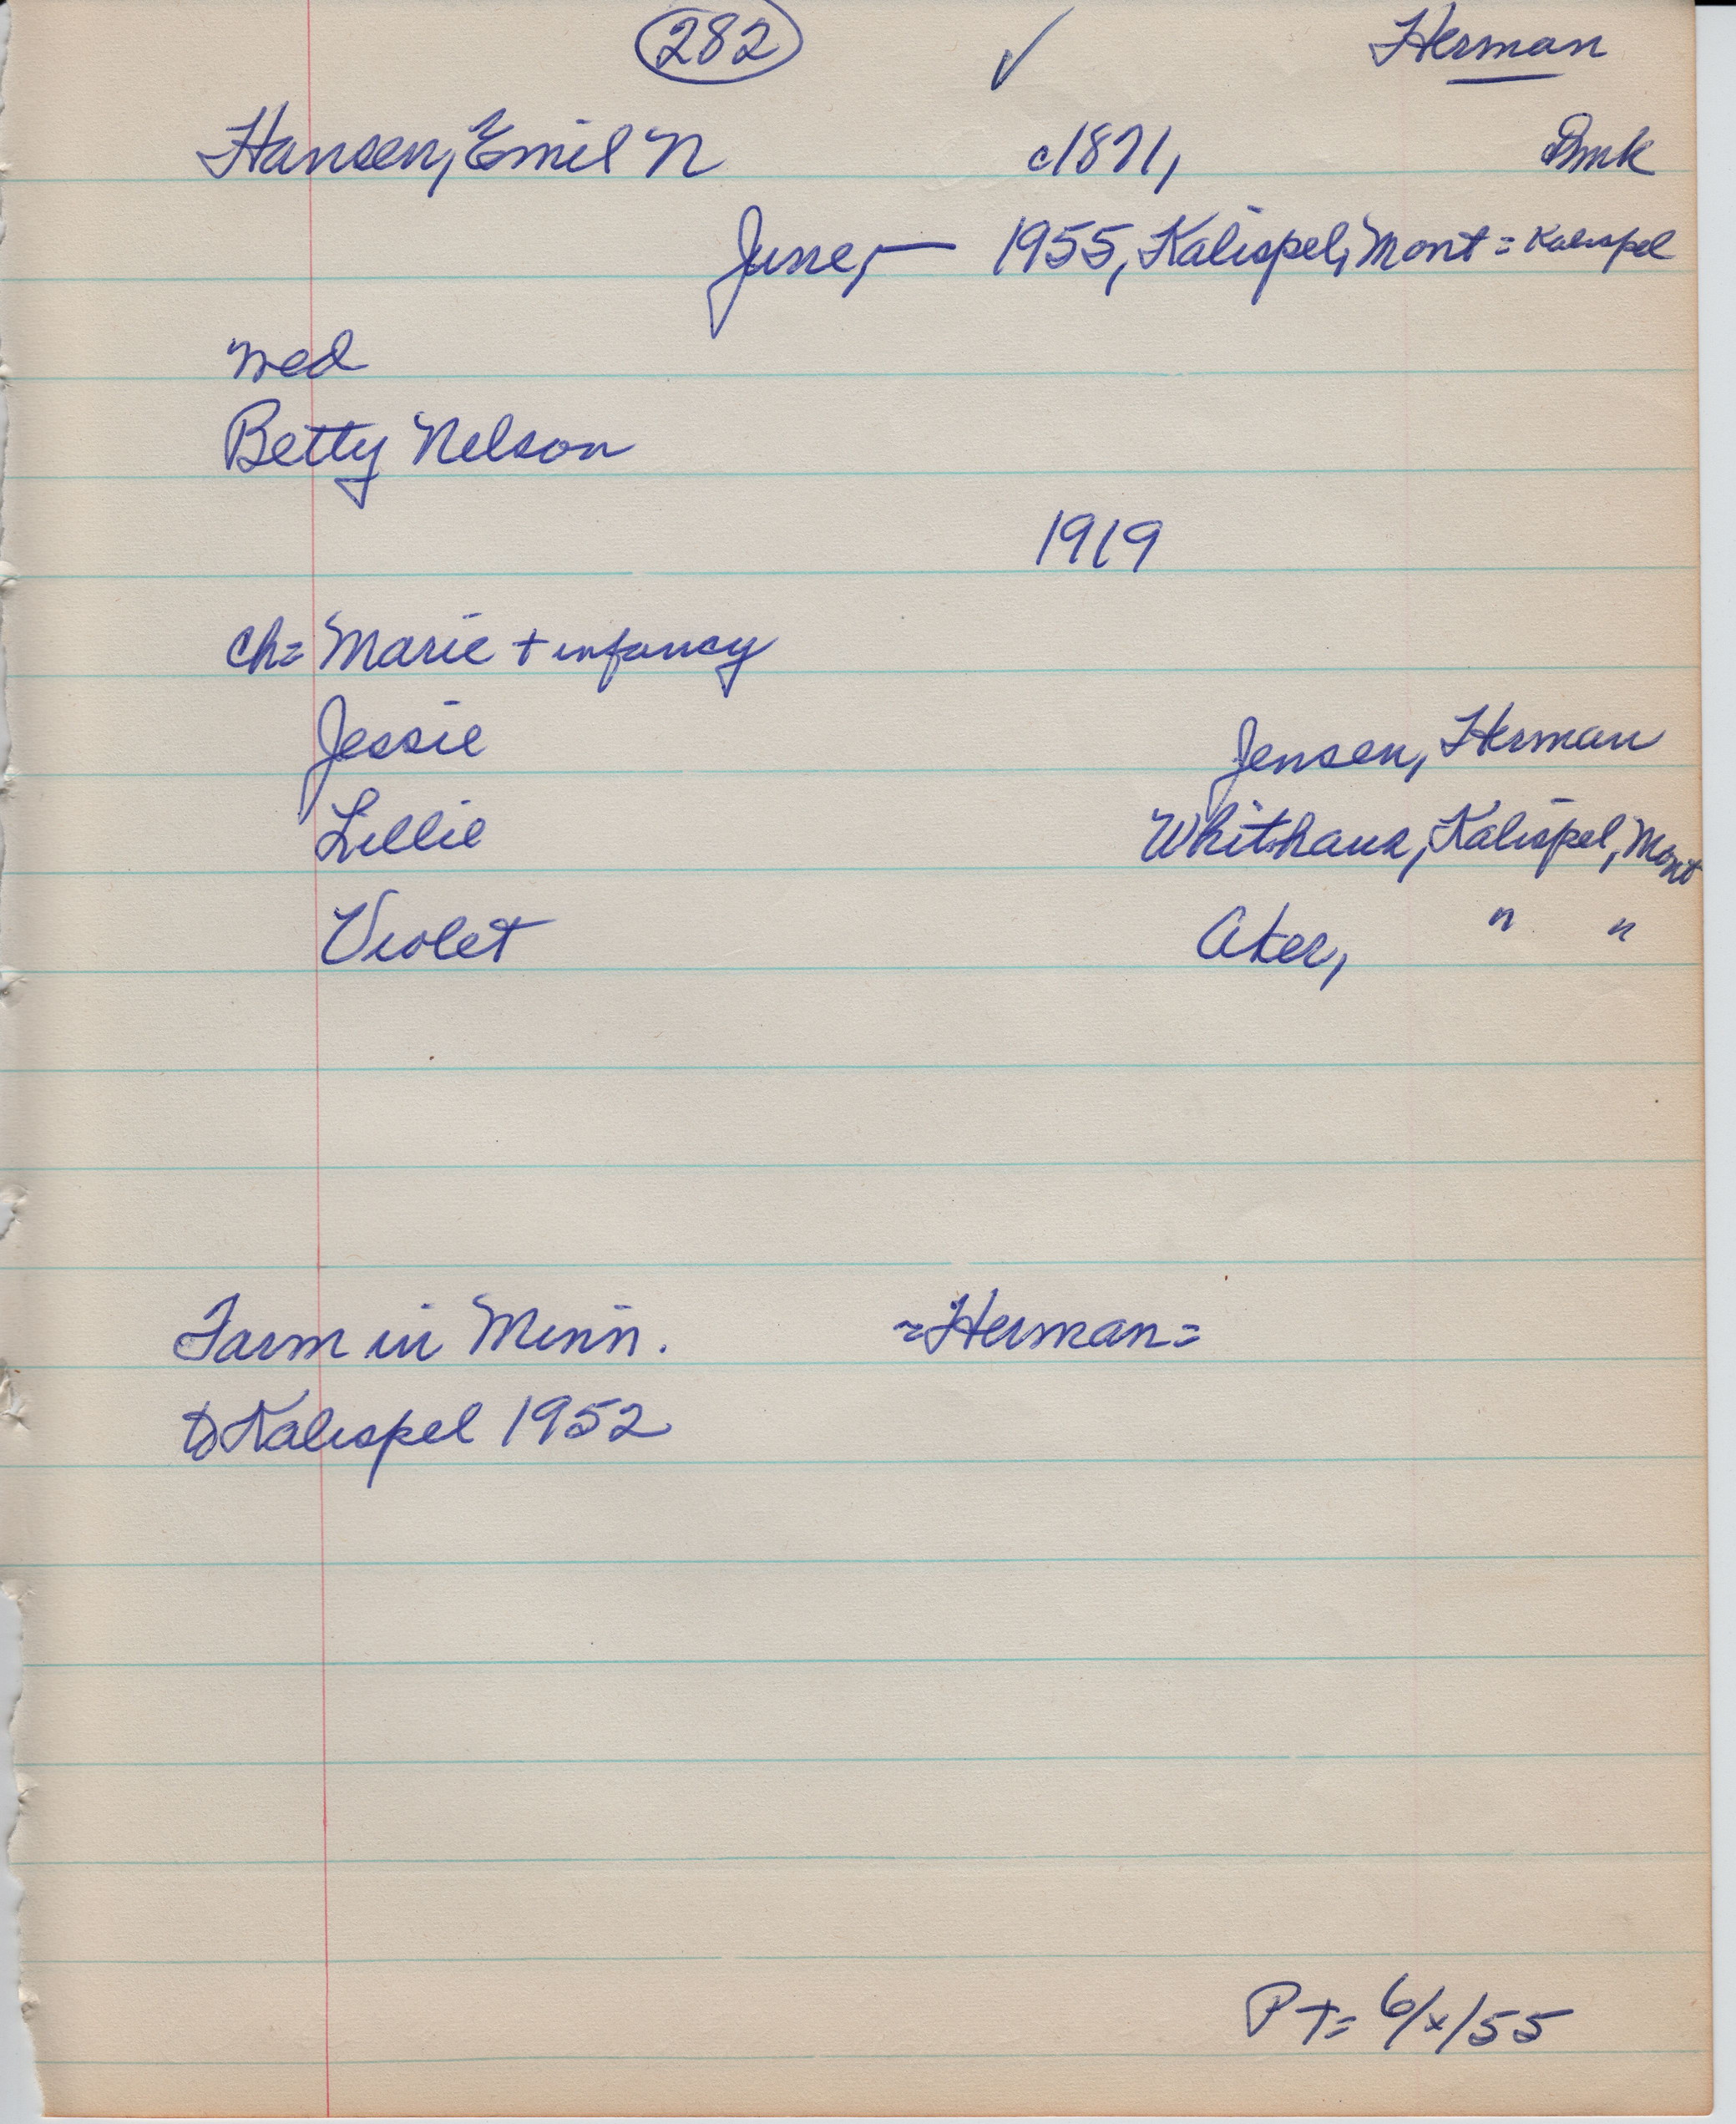 282 ✓ Herman
Hansen, Emil N c1871, Dmk
June, — 1955, Kalispel, Mont = Kalispel
wed
Betty Nelson
1919
Ch= Marie + infancy
Jessie Jensen, Herman
Lillie Kalispel, Mont
Violet Aker, " "
Farm in Minn. =Herman=
to Kalispel 1952
PT= 6/x/55